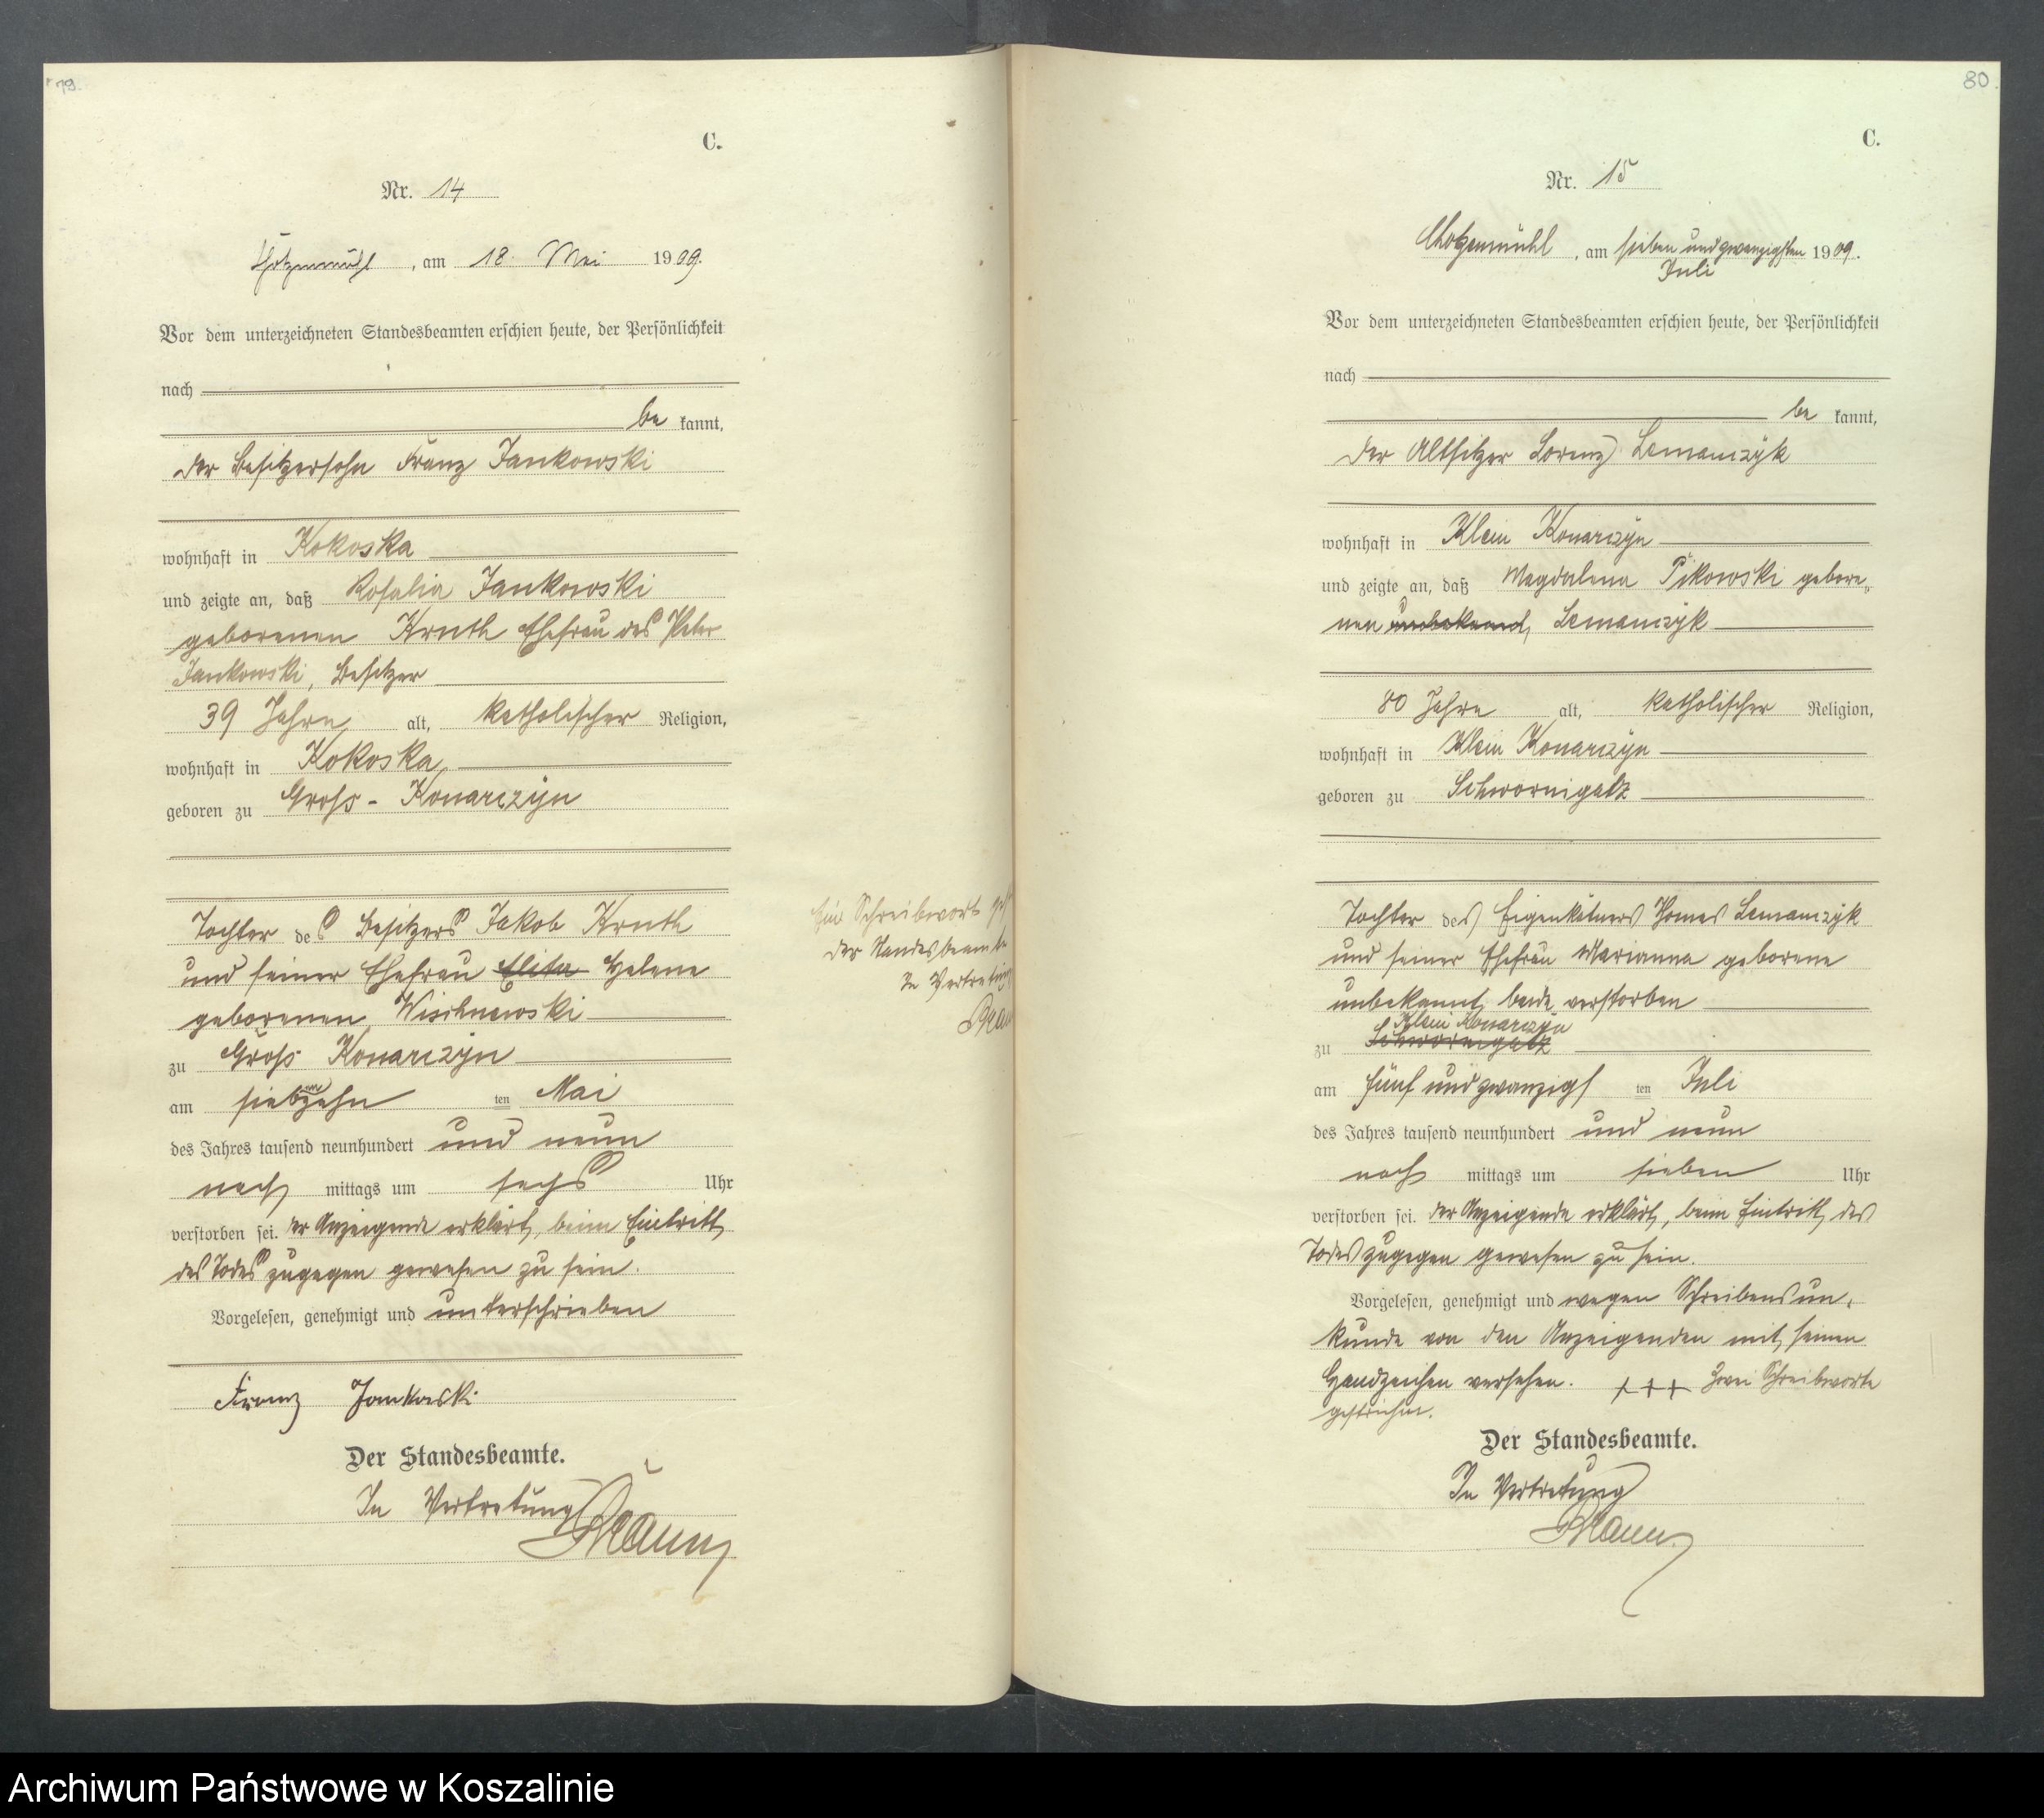 79.
C.
Nr. 14
Chotzenmühl, am 18. Mai 1909.
Vor dem unterzeichneten Standesbeamten erschien heute, der Persönlichkeit
nach
be kannt,
der Besitzersohn Franz Jankowski
wohnhaft in Kokoska
und zeigte an, daß Rosalia Jankowski
geborenen Kruth Ehefrau des Peter
Jankowski, Besitzer
39 Jahre alt, katholischer Religion,
wohnhaft in Kokoska,
geboren zu Gross-Konarczyn
Tochter des Besitzers Jakob Kruth
und seiner Ehefrau Helene
geborenen Wischnewski
zu Gross Konarczyn
am siebzehn ten Mai
des Jahres tausend neunhundert und neun
nach mittags um sechs Uhr
verstorben sei. der Anzeigende erklärt, beim Eintritt
des Todes zugegen gewesen zu sein.
Vorgelesen, genehmigt und unterschrieben
Franz Jankowski
Der Standesbeamte.
In Vertretung
Ein Schreibwort
der Standesbeamte
In Vertretung
80.
C.
Nr. 15
Chotzenmühl, am sieben und zwanzigsten 1909.
Juli
Vor dem unterzeichneten Standesbeamten erschien heute, der Persönlichkeit
nach
be kannt,
der Altsitzer Lorenz Lemanczyk
wohnhaft in Klein Konarczyn
und zeigte an, daß Magdalena Pikowski gebore„
nen unbekannt, Lemanczyk
80 Jahre alt, katholischer Religion,
wohnhaft in Klein Konarczyn
geboren zu Schwornigatz
Tochter des Eigenkätners Thomas Lemanczyk
und seiner Ehefrau Marianna geborene
unbekannt, beide verstorben
Klein Konarczyn
zu Schwornigatz
am fünf und zwanzigs ten Juli
des Jahres tausend neunhundert und neun
nach mittags um sieben Uhr
verstorben sei. der Anzeigende erklärt, beim Eintritt des
Todes zugegen gewesen zu sein.
Vorgelesen, genehmigt und wegen Schreibensun„
kunde von den Anzeigenden mit seinen
Handzeichen versehen. +++ Zwei Schreibworte
gestrichen.
Der Standesbeamte.
In Vertretung
Archiwum Państwowe w Koszalinie